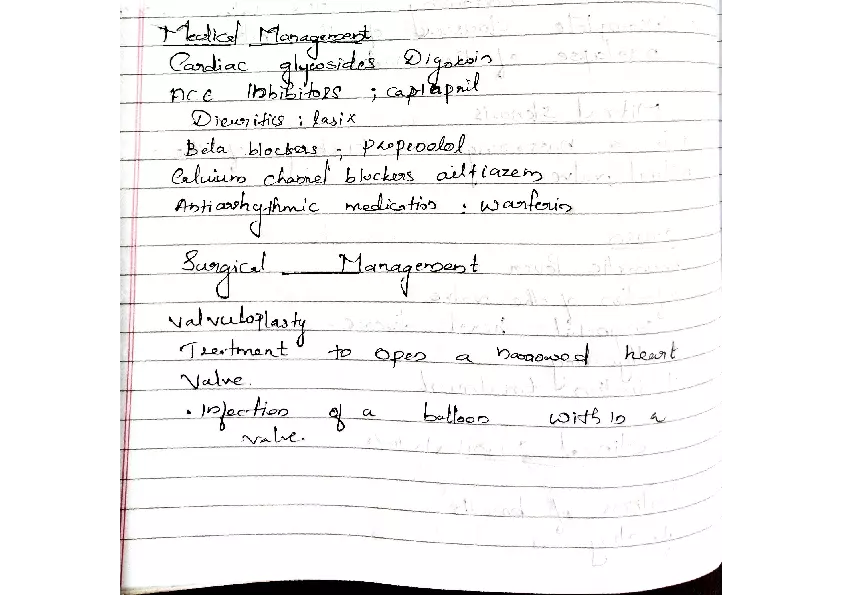 Medical Management
Cardiac glycosides Digoxin
ACE Inhibitors ; captapril
Dieuritics : lasix
Beta blockers ; Propeolol
Calcium channel blockers ailtiazem
Antiarrhythmic medication : warferin
Surgical Management
valvuloplasty :
Treatment to open a narrowed heart
Valve.
. Injection of a balloon within a
valve.